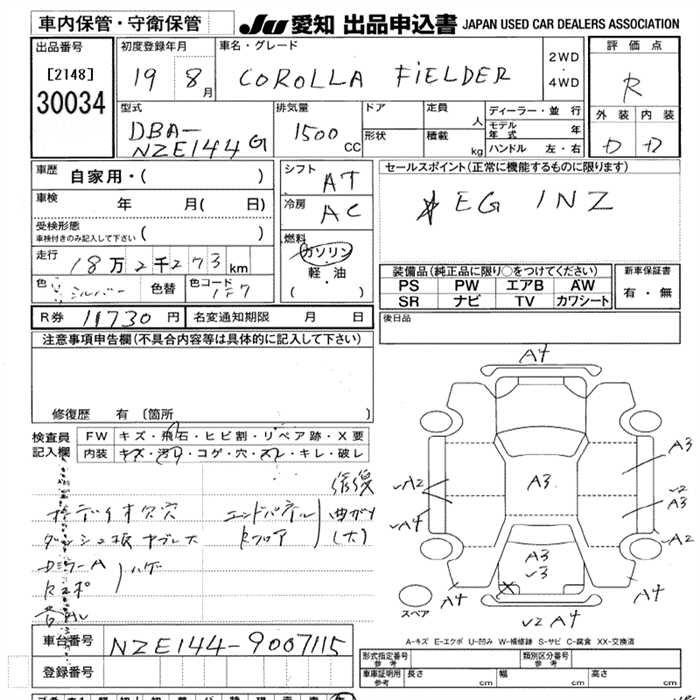 車内保管・守衛保管
JU 愛知 出品申込書 JAPAN USED CAR DEALERS ASSOCIATION
出品番号
[2148]
30034
初度登録年月
19 8月
車名・グレード
COROLLA FIELDER
2WD
・
4WD
評価点
R
外装 内装
D D
型式
DBA-
NZE144G
排気量
1500 CC
ドア
形状
定員 人
積載 kg
ディーラー・並行
モデル年式 年
ハンドル 左・右
車歴
自家用・( )
車検 年 月( 日)
受検形態
車検付きのみ記入して下さい ( )
走行 18万2千273km
色 シルバー 色替 色コード 1F7
シフト AT
冷房 AC
燃料
ガソリン
軽・油
( )
セールスポイント(正常に機能するものに限ります)
EG 1NZ
装備品(純正品に限り○をつけてください)
PS PW エアB AW
SR ナビ TV カワシート
新車保証書
有・無
R券 11730円 名変通知期限 月 日
後日品
注意事項申告欄(不具合内容等は具体的に記入して下さい)
修復歴 有〔箇所 〕
検査員
記入欄
FW キズ・飛石・ヒビ割・リペア跡・X要
内装 キズ・汚れ・コゲ・穴・スレ・キレ・破レ
修復
オーディオ欠穴
エンドパネル
曲がり
Rフロア
(大)
ハゲ
A4
A3
A2
A4
A3
A3
A2
A3
A4
A4
A4
スペア
A-キズ E-エクボ U-凹み W-補修跡 S-サビ C-腐食 XX-交換済
車台番号 NZE144-9007115
登録番号
形式指定番号
参考
類別区分番号
参考
車庫証明用
参考
長さ cm 幅 cm 高さ cm